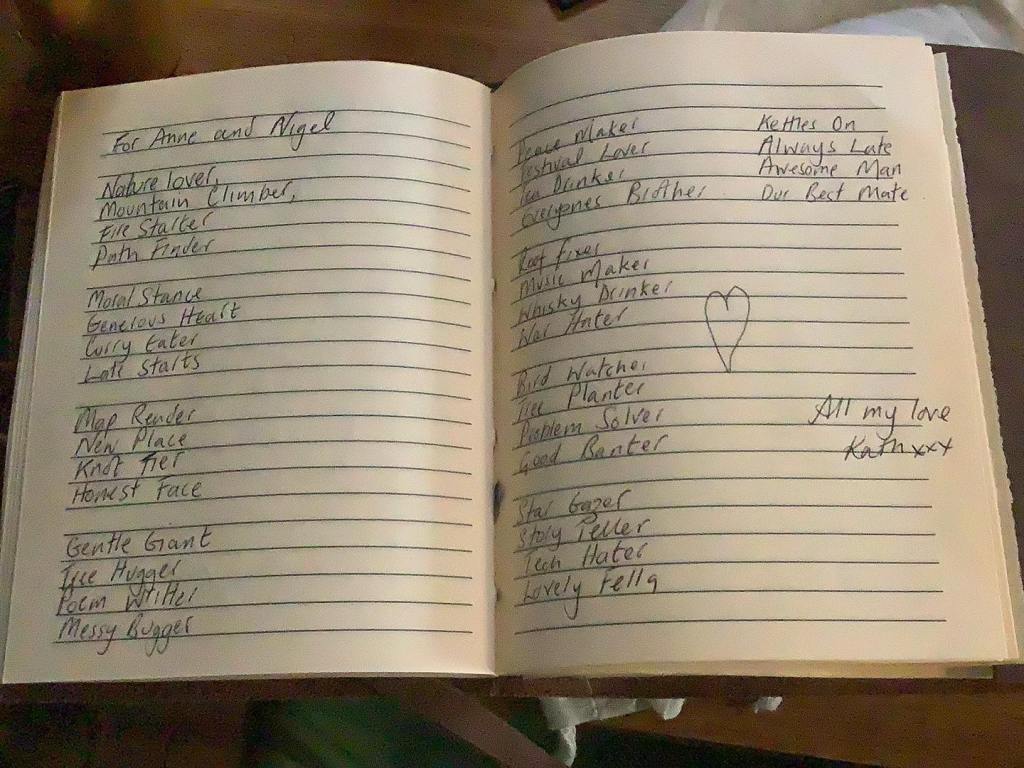 For Anne and Nigel
Nature lover,
Mountain Climber,
Fire Starter
Path Finder
Moral Stance
Generous Heart
Curry Eater
Late Starts
Map Reader
New Place
Knot Tier
Honest Face
Gentle Giant
Tree Hugger
Poem Writter
Messy Bugger
Peace Maker
Festival Lover
Tea Drinker
Everyones Brother
Roof Fixer
Music Maker
Whisky Drinker
War Hater
Bird Watcher
Tree Planter
Problem Solver
Good Banter
Star Gazer
Story Teller
Tech Hater
Lovely Fella
Kettles On
Always Late
Awesome Man
Our Best Mate
All my love
Kath xxx